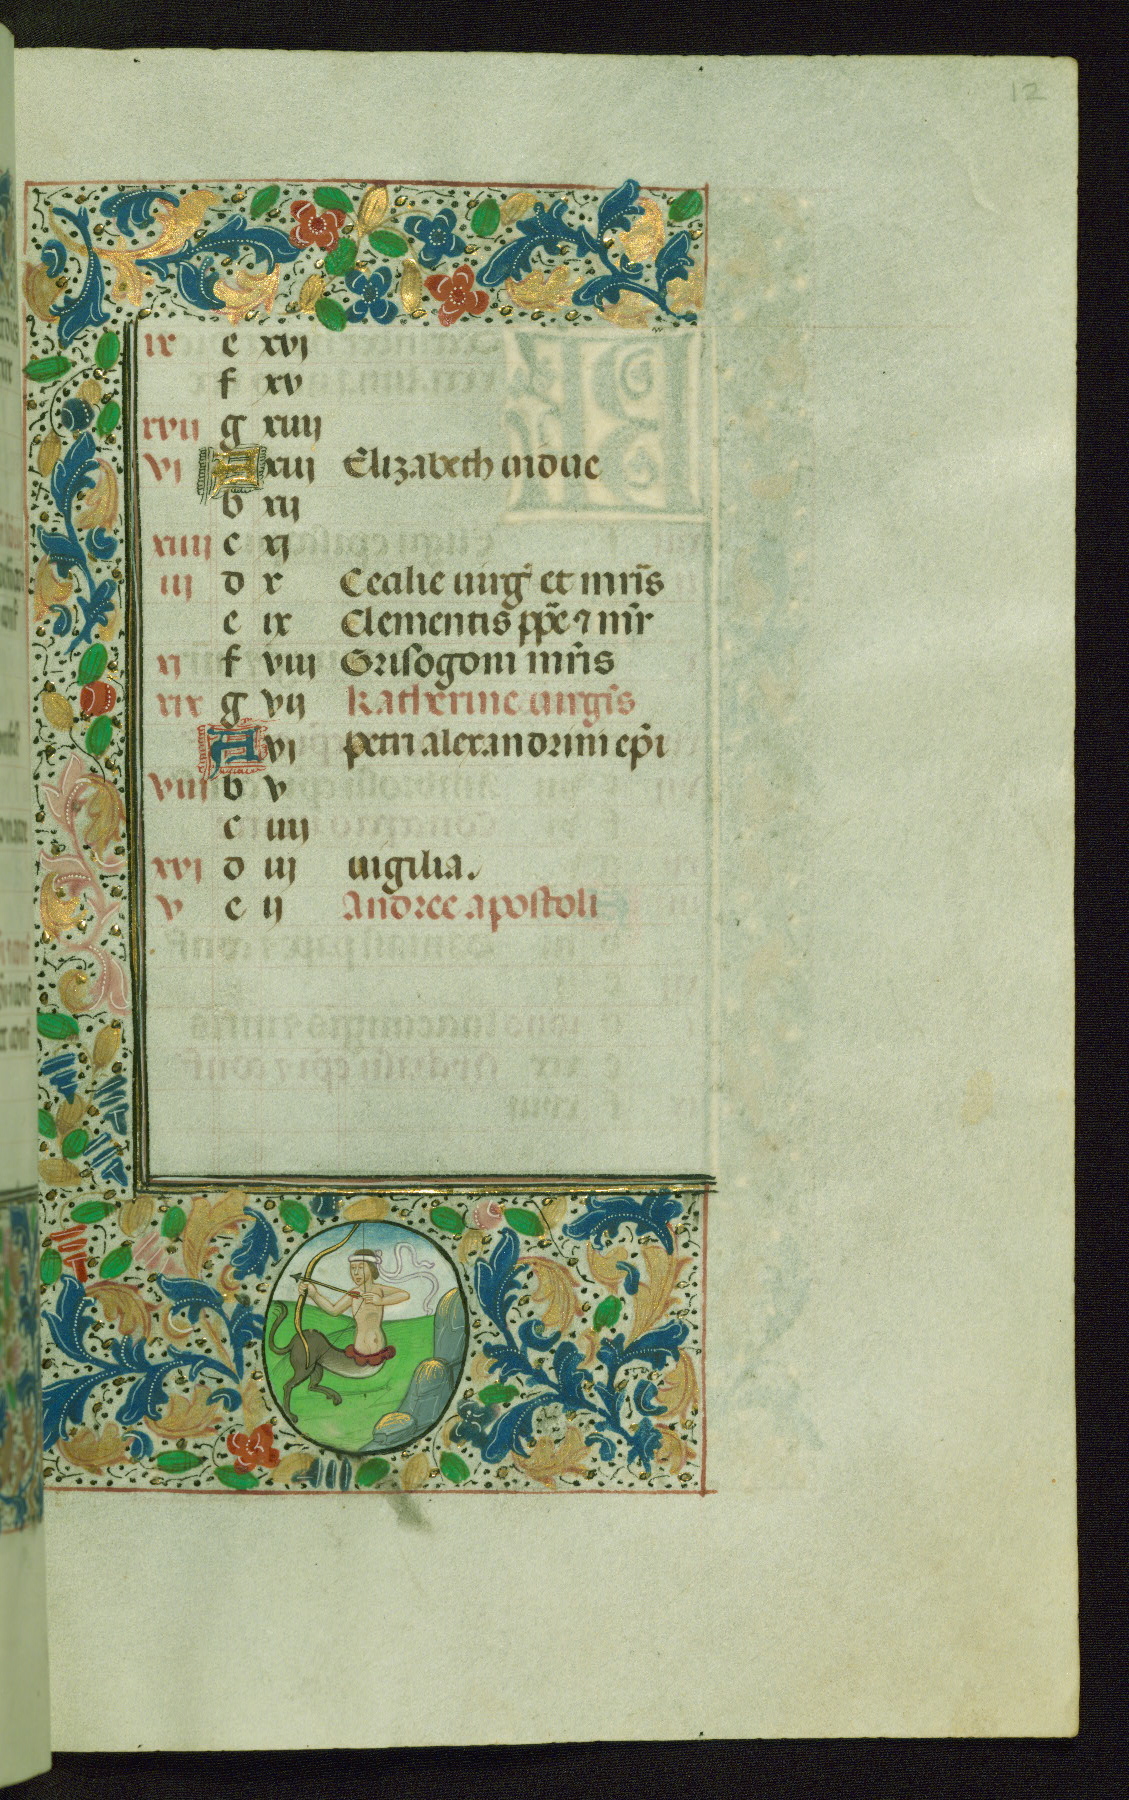 12
ix e xvj
f xv
xvii g xiiij
vj A xiij Elizabeth vidue
b xij
xiiij c xj
iij d x Cecilie virg̃ et mr̃is
e ix Clementis pp̃e ⁊ mr̃
xj f viij Grisogoni mr̃is
xix g vij Katherine virgĩs
A vj Petri alexandrini ep̃i
viij b v
c iiij
xvj d iij vigilia.
v e ij Andree apostoli